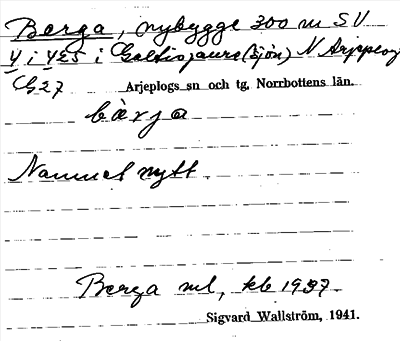 Berga, nybygge 300 m SV
Y i 425 i Galtisjaure (sjön) N Arjeplog
C27 Arjeplogs sn och tg, Norrbottens län.
bärja
Namnet nytt.
Berga ml, kb 1937.
Sigvard Wallström, 1941.